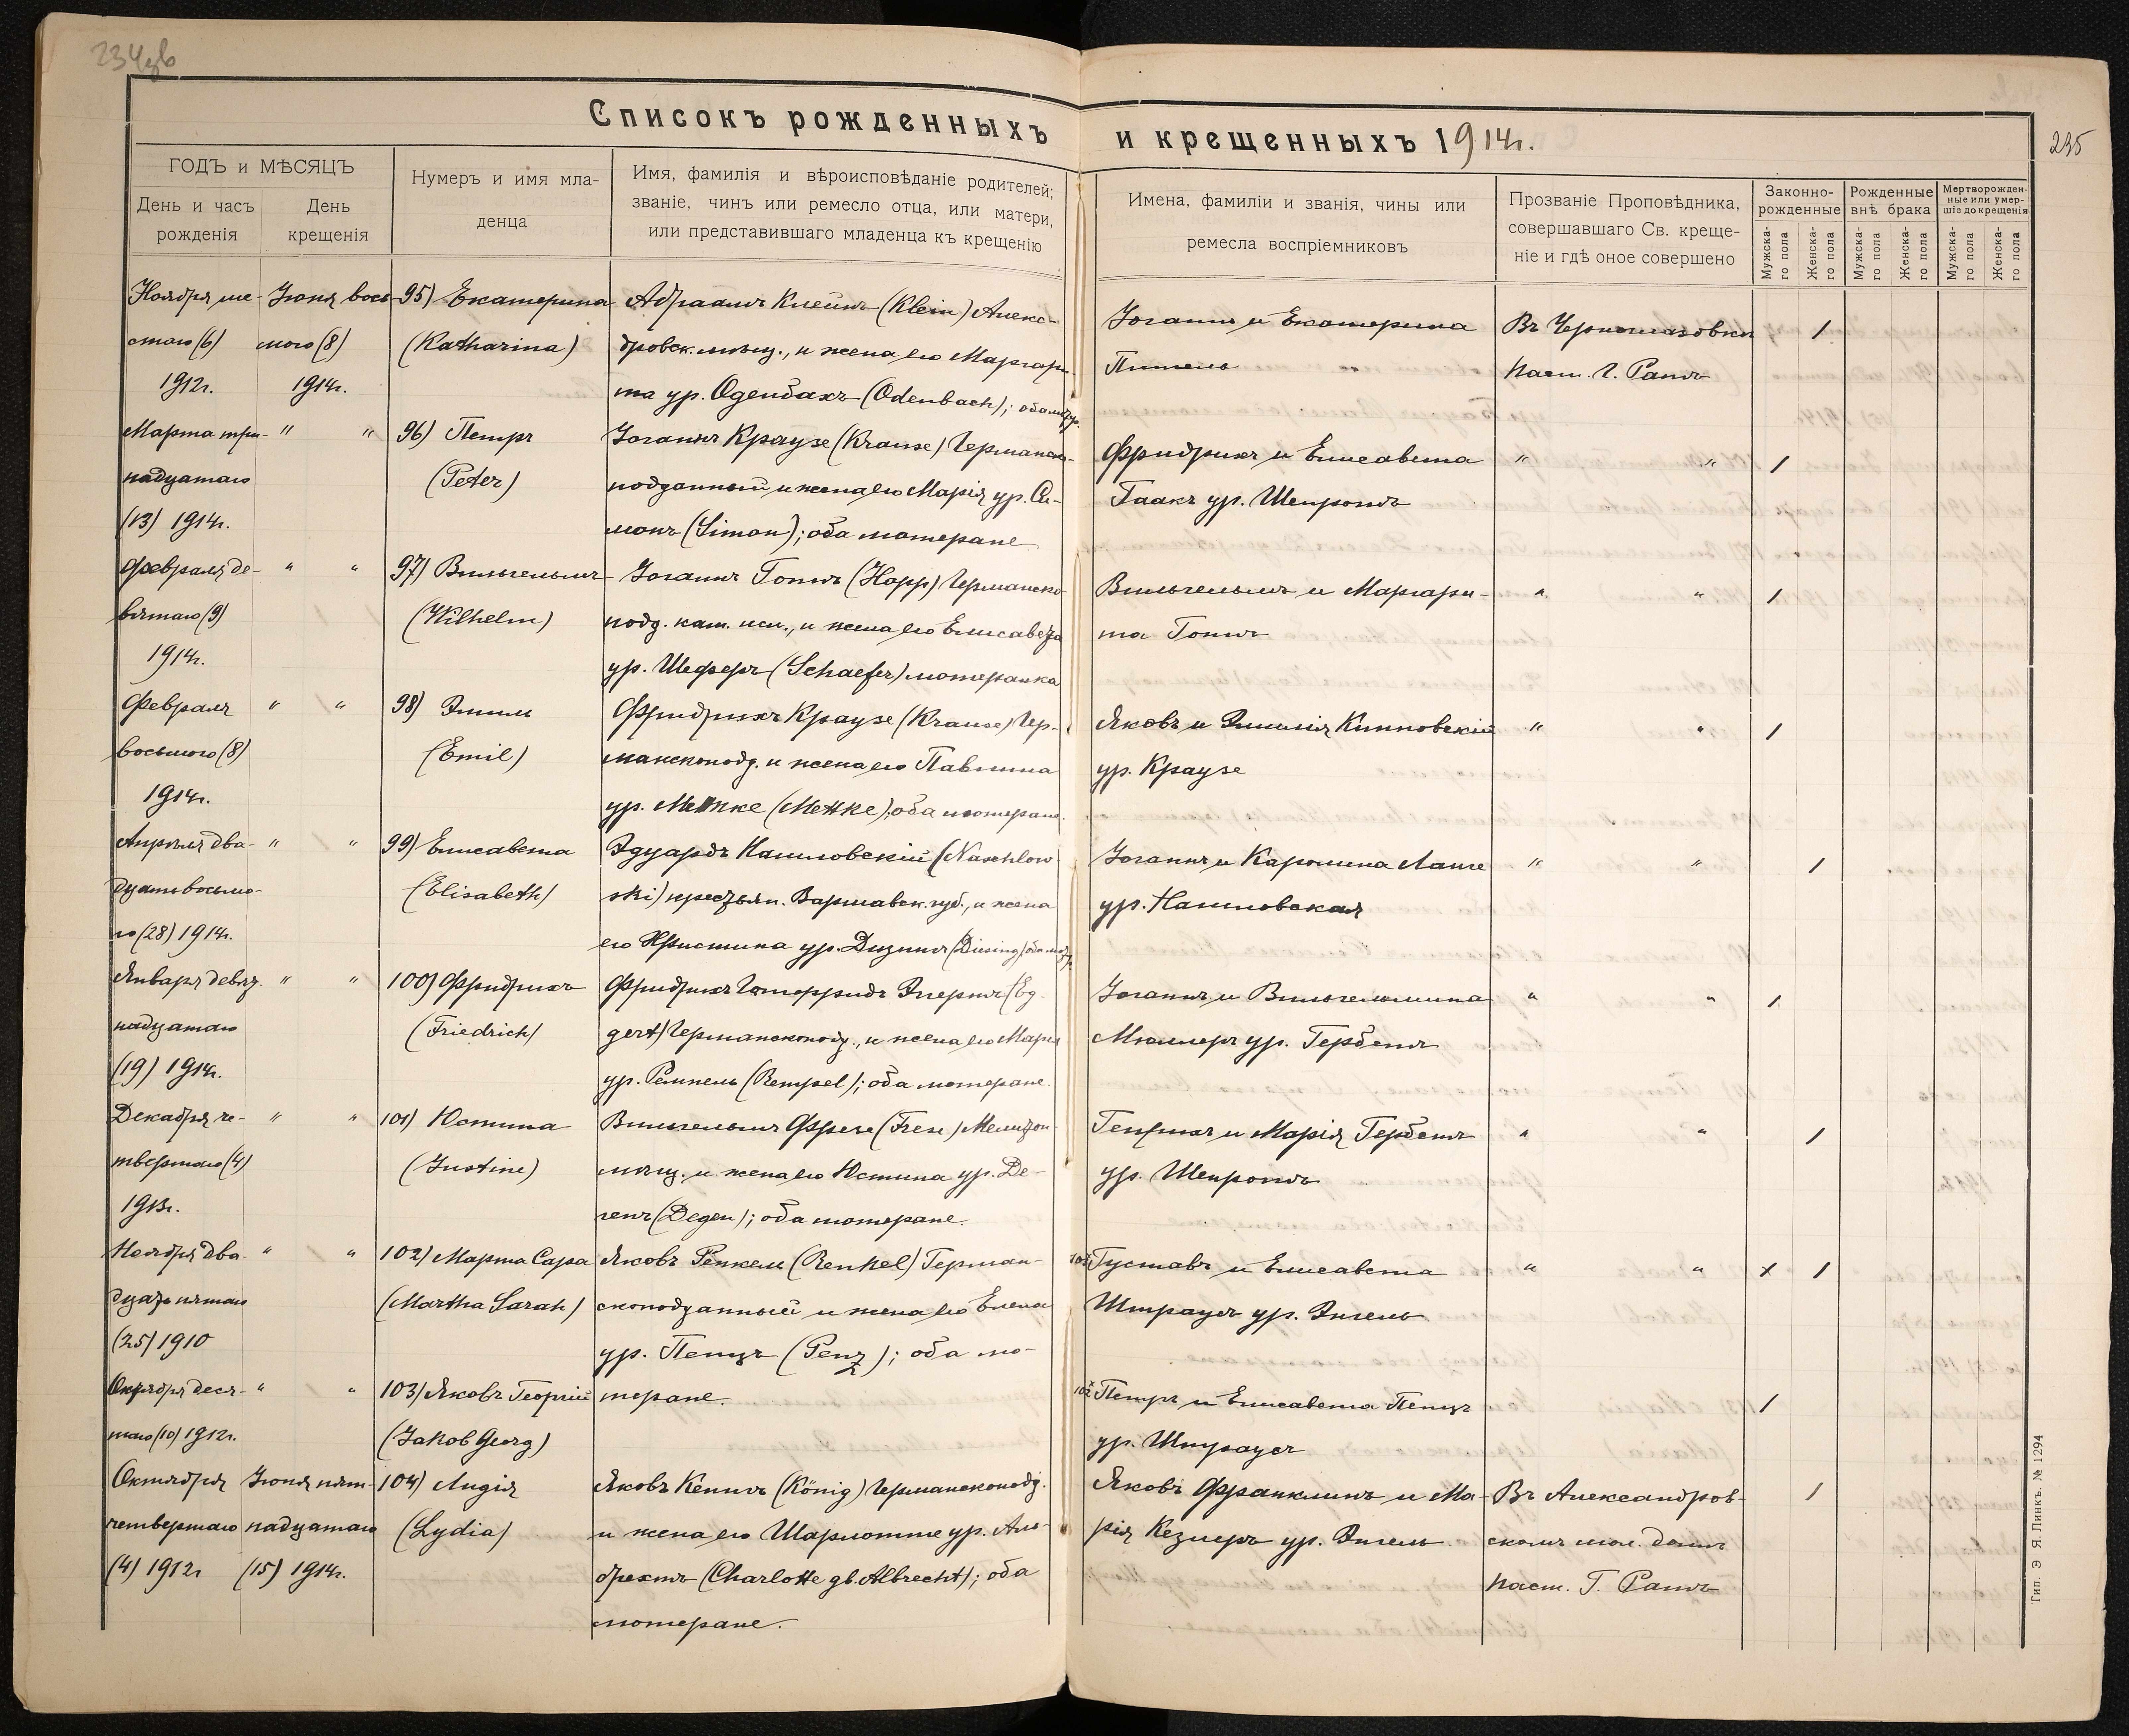 234об
Списокъ рожденныхъ и крещенныхъ 1914г.
235
ГОДЪ и МѢСЯЦЪ
День и часъ рожденія
День крещенія
Нумеръ и имя мла-
денца
Имя, фамилія и вѣроисповѣданіе родителей;
званіе, чинъ или ремесло отца, или матери,
или представившаго младенца къ крещенію
Имена, фамиліи и званія, чины или
ремесла воспріемниковъ
Прозваніе Проповѣдника,
совершавшаго Св. креще-
ніе и гдѣ оное совершено
Законно-
рожденные
Рожденные
внѣ брака
Мертворожден-
ные или умер-
шіе до крещенія
Мужска-
го пола
Женска-
го пола
Мужска-
го пола
Женска-
го пола
Мужска-
го пола
Женска-
го пола
Ноября ше-
стаго (6)
1912г.
Іюня вось-
мого (8)
1914г.
95) Екатерина
(Katharina)
Абраамъ Клейнъ (Klein) Алекс-
дровск. мѣщ., и жена его Маргари-
та ур. Оденбахъ (Odenbach); оба лютер.
Іоганнъ и Екатерина
Въ
Паст. Г. Ратъ
/
Марта три-
надцатаго
(13) 1914г.
" "
96) Петръ
(Peter)
Іоганнъ Краузе (Krause) Германско-
подданный и жена его Марія ур. Си-
монъ (Simon); оба лютеране
Фридрихъ и Елисавета
Гаакъ ур. Шепромъ
" "
/
Февраля де-
вятаго (9)
1914г.
" "
97) Вильгельмъ
(Wilhelm)
Іоганнъ Гоппъ (Hopp) Германско-
подд. кат. исп., и жена его Елисавета
ур. Шеферъ (Schaefer) лютеранка
Вильгельмъ и Маргари-
та Гоппъ
" "
/
Февраля
восьмого (8)
1914г.
" "
98) Эмиль
(Emil)
Фридрихъ Краузе (Krause) Гер-
манскоподд. и жена его Павлина
ур. Метке (Mettke); оба лютеране.
Яковъ и Эмилія Книповскій
ур. Краузе
" "
/
Апрѣля два-
дцать восьмо-
го (28) 1914г.
" "
99) Елисавета
(Elisabeth)
Эдуардъ Нашловскій (Naschlow
ski) крестьян. Варшавск. губ., и жена
его Христина ур. Дизингъ (Diesing) оба лют.
Іоганнъ и Каролина Ланге
ур. Нашловская
" "
/
Января девят-
надцатаго
(19) 1914г.
" "
100) Фридрихъ
(Friedrich)
Фридрихъ Готфридъ Эггертъ (Eg
gert) Германскоподд., и жена его Марія
ур. Ремпель (Rempel); оба лютеране.
Іоганнъ и Вильгельмина
Мюллеръ ур. Гербенъ
" "
/
Декабря че-
твертаго (4)
1913г.
" "
101) Юстина
(Justine)
Вильгельмъ Фрезе (Frese) Мелитоп-
мѣщ. и жена его Юстина ур. Де-
генъ (Degen); оба лютеране.
Генрихъ и Марія Гербенъ
ур. Шепромъ
" "
/
Ноября два-
дцать пятаго
(25) 1910
" "
102) Марта Сара
(Martha Sarah)
Яковъ Ренкель (Renkel) Герман-
скоподданный и жена его Елена
ур. Пенцъ (Penz); оба лю-
102) Густавъ и Елисавета
Штраусъ ур. Энгель
" "
x /
Октября деся-
таго (10) 1912г.
" "
103) Яковъ Георгій
(Jakob Georg)
теране.
Петръ и Елисавета Пенцъ
ур. Штраусъ
/
Октября
четвертаго
(4) 1912г
Іюня пят-
надцатаго
(15) 1914г.
104) Лидія
(Lydia)
Яковъ Кенигъ (König) Германскоподд.
и жена его Шарлотте ур. Аль-
брехтъ (Charlotte gb. Albrecht); оба
лютеране.
Яковъ Франклинъ и Ма-
рія Кезлеръ ур. Энгель
Въ Александров-
скомъ мол. домѣ
Паст. Г. Ратъ
/
Тип. Э. Я. Линкъ. № 1294